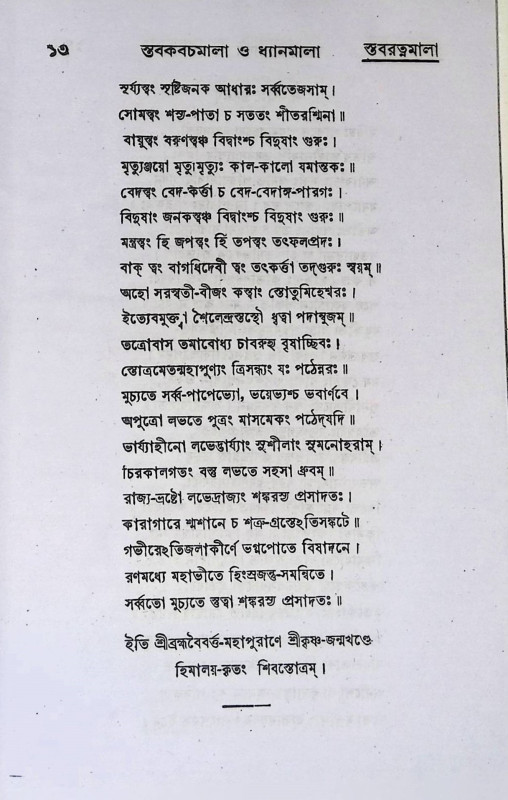 ১৩ স্তবকবচমালা ও ধ্যানমালা স্তবরত্নমালা
সূর্য্যস্ত্বং সৃষ্টিজনক আধারঃ সর্ব্বতেজসাম্।
সোমস্ত্বং শস্য-পাতা চ সততং শীতরশ্মিনা॥
বায়ুস্ত্বং বরুণস্ত্বঞ্চ বিদ্বাংশ্চ বিদুষাং গুরুঃ।
মৃত্যুঞ্জয়ো মৃত্যুমৃত্যুঃ কাল-কালো যমান্তকঃ॥
বেদস্ত্বং বেদ-কর্ত্তা চ বেদ-বেদাঙ্গ-পারগঃ।
বিদুষাং জনকস্ত্বঞ্চ বিদ্বাংশ্চ বিদুষাং গুরুঃ॥
মন্ত্রস্ত্বং হি জপস্ত্বং হি তপস্ত্বং তৎফলপ্রদঃ।
বাক্ ত্বং বাগধিদেবী ত্বং তৎকর্ত্তা তদ্‌গুরুঃ স্বয়ম্॥
অহো সরস্বতী-বীজং কস্ত্বাং স্তোতুমিহেশ্বরঃ।
ইত্যেবমুক্ত্বা শৈলেন্দ্রস্তস্থৌ ধৃত্বা পদাম্বুজম্॥
তত্রোবাস তমাবোধ্য চাবরুহ্য বৃষাচ্ছিবঃ।
স্তোত্রমেতন্মহাপুণ্যং ত্রিসন্ধ্যং যঃ পঠেন্নরঃ॥
মুচ্যতে সর্ব্ব-পাপেভ্যো, ভয়েভ্যশ্চ ভবার্ণবে।
অপুত্রো লভতে পুত্রং মাসমেকং পঠেদ্‌যদি॥
ভার্য্যাহীনো লভেদ্ভার্য্যাং সুশীলাং সুমনোহরাম্।
চিরকালগতং বস্তু লভতে সহসা ধ্রুবম্॥
রাজ্য-ভ্রষ্টো লভেদ্রাজ্যং শঙ্করস্য প্রসাদতঃ।
কারাগারে শ্মশানে চ শত্রু-গ্রস্তেঽতিসঙ্কটে॥
গভীরেঽতিজলাকীর্ণে ভগ্নপোতে বিষাদনে।
রণমধ্যে মহাভীতে হিংস্রজন্তু-সমন্বিতে।
সর্ব্বতো মুচ্যতে স্তুত্বা শঙ্করস্য প্রসাদতঃ॥
ইতি শ্রীব্রহ্মবৈবর্ত্ত-মহাপুরাণে শ্রীকৃষ্ণ-জন্মখণ্ডে
হিমালয়-কৃতং শিবস্তোত্রম্।